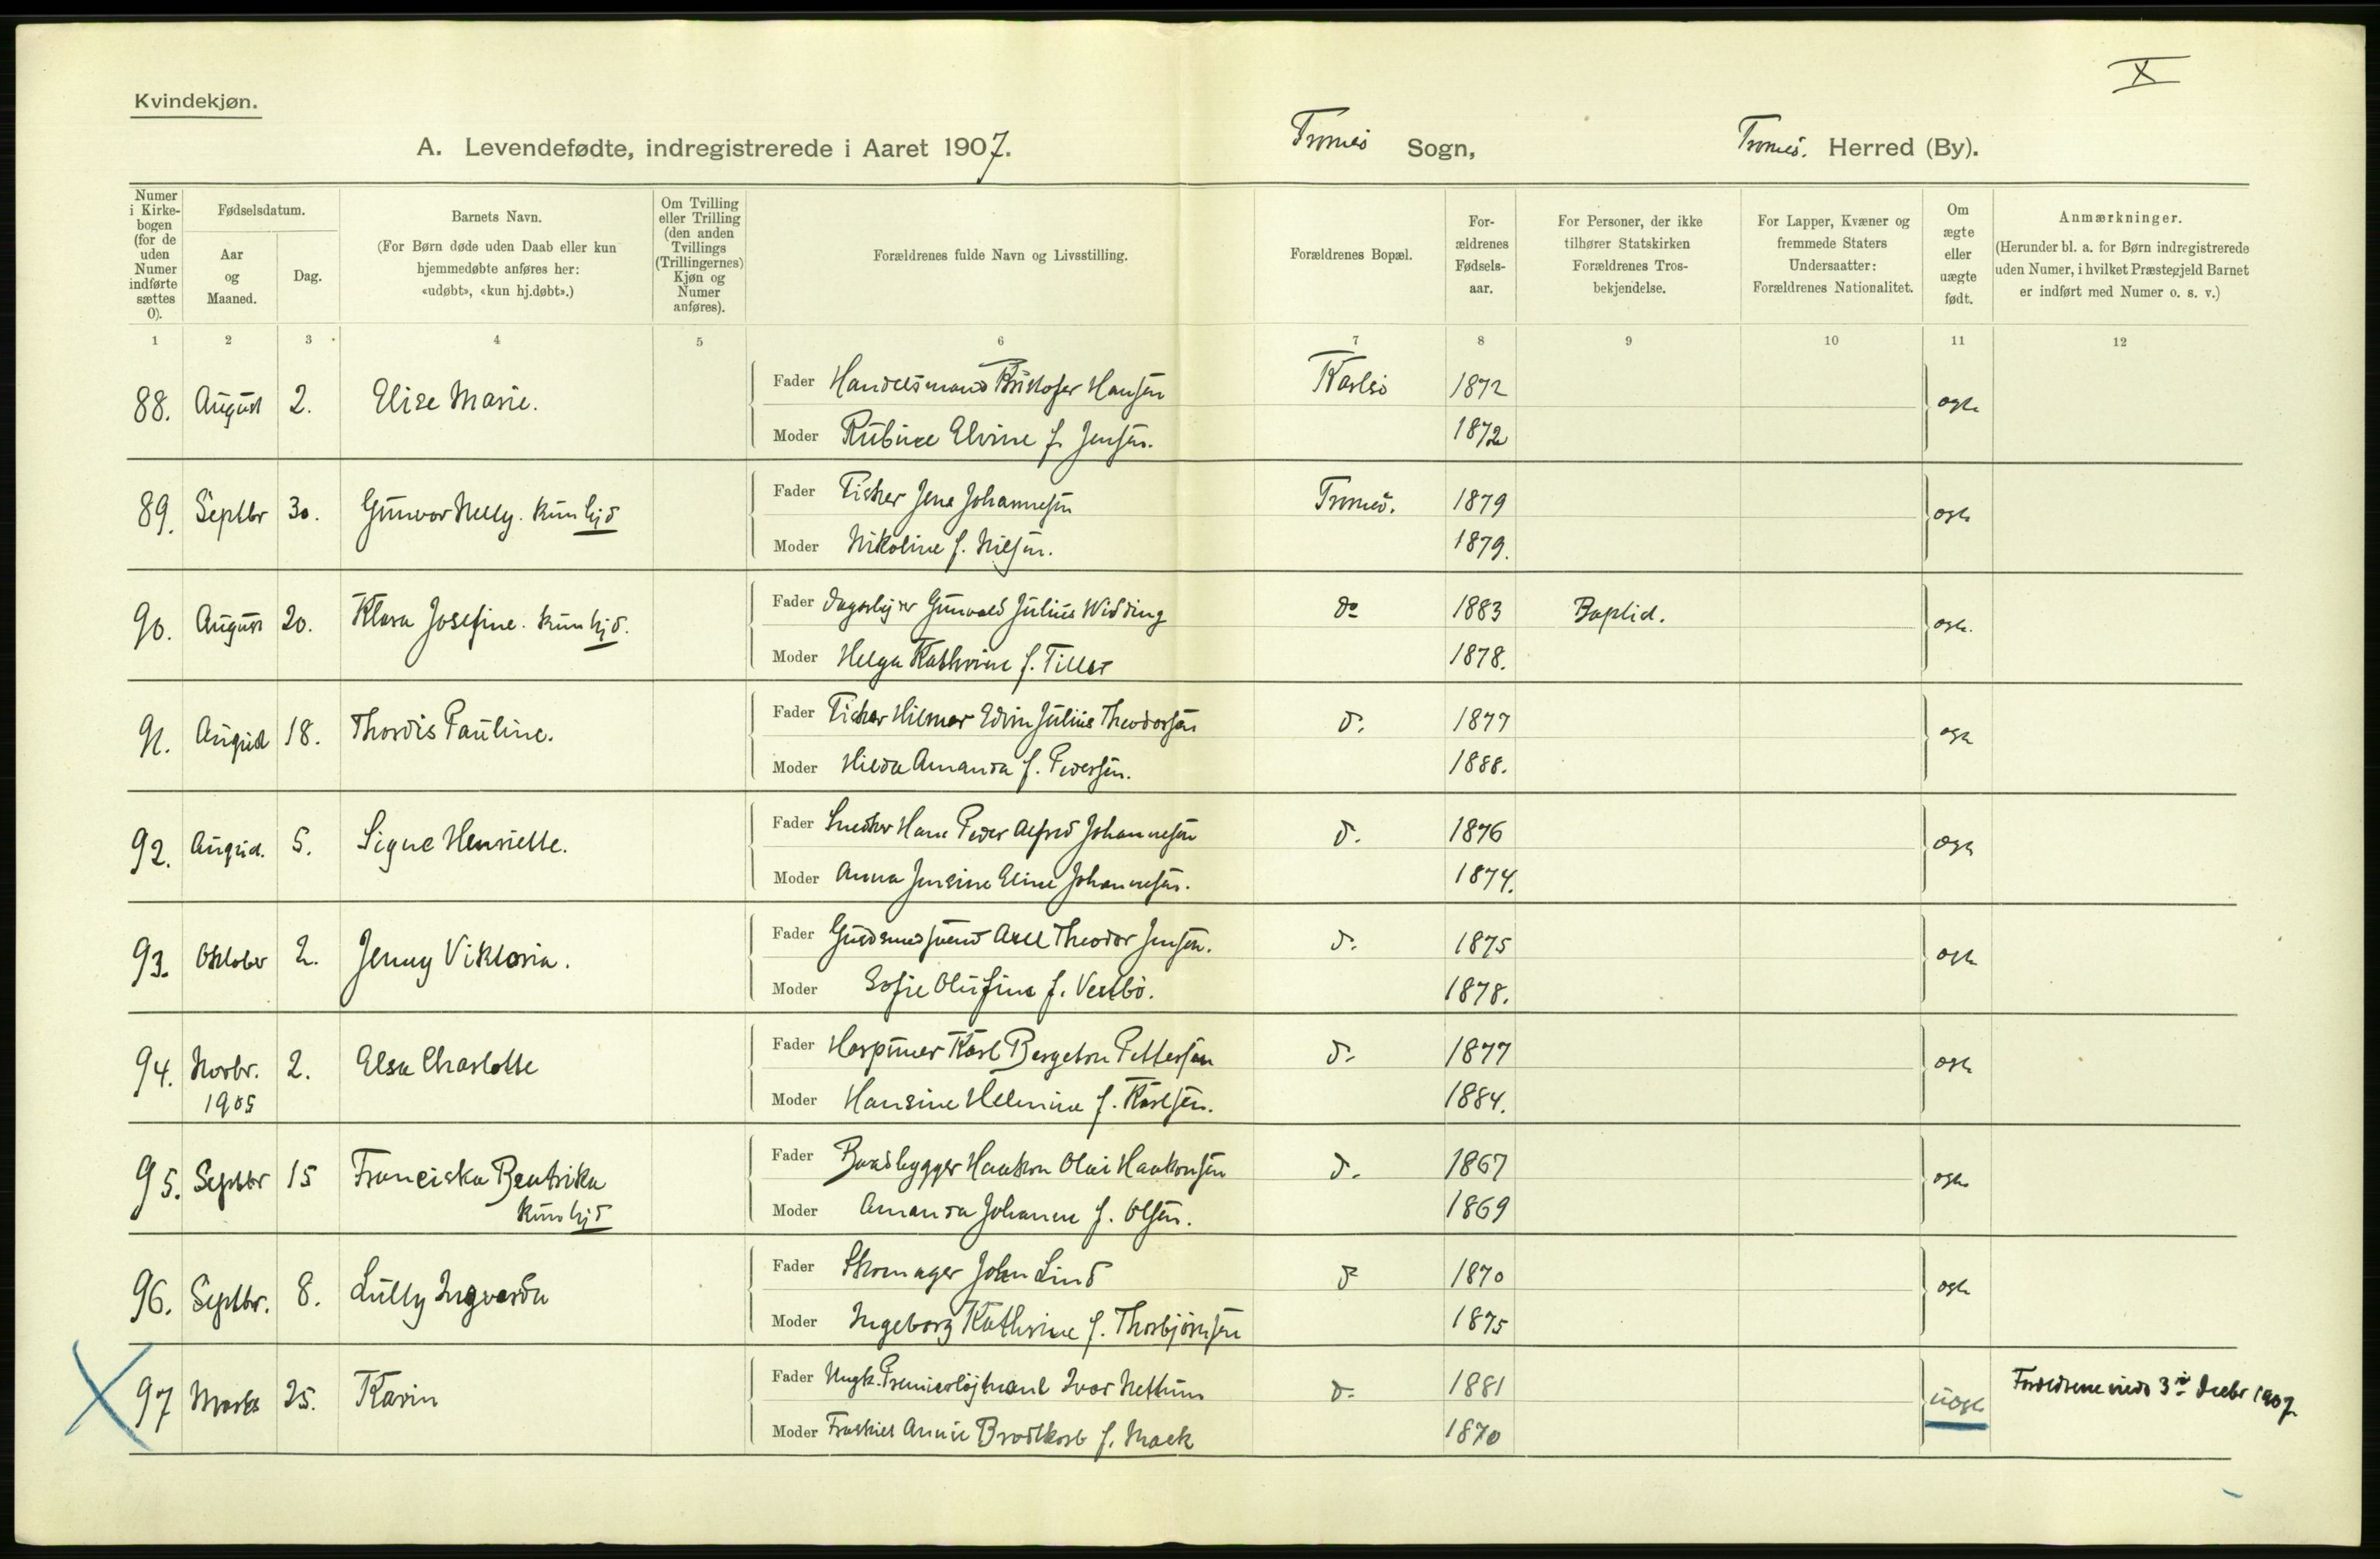 X
Kvindekjøn.
A. Levendefødte, indregistrerede i Aaret 1907. Tromsö Sogn, Tromsö. Herred (By).
Numer i Kirke-bogen (for de uden Numer indførte sættes 0).
Fødselsdatum.
Aar og Maaned.
Dag.
Barnets Navn.
(For Børn døde uden Daab eller kun hjemmedøbte anføres her: «udøbt», «kun hj.døbt».)
Om Tvilling eller Trilling (den anden Tvillings (Trillingernes) Kjøn og Numer anføres).
Forældrenes fulde Navn og Livsstilling.
Forældrenes Bopæl.
For-ældrenes Fødsels-aar.
For Personer, der ikke tilhører Statskirken Forældrenes Tros-bekjendelse.
For Lapper, Kvæner og fremmede Staters Undersaatter: Forældrenes Nationalitet.
Om ægte eller uægte født.
Anmærkninger.
(Herunder bl. a. for Børn indregistrerede uden Numer, i hvilket Præstegjeld Barnet er indført med Numer o. s. v.)
1 2 3 4 5 6 7 8 9 10 11 12
88. August 2. Elise Marie. Fader Handelsmand Kristofer Hansen Karlsö 1872 ægte
Moder Rubine Elvine f. Jensen. 1872
89. Septbr 30. Gunvor Nelly. kun hjd Fader Fisker Jens Johannesen Tromsö. 1879 ægte
Moder Nikoline f. Nilsen. 1879.
90. August 20. Klara Josefine. kun hjd. Fader Dagarbejder Gunvald Julius Widding do 1883 Baptist. ægte
Moder Helga Kathrine f. Tiller 1878.
91. August 18. Thordis Pauline. Fader Fisker Hilmar Edvin Julius Theodorsen d. 1877 ægte
Moder Hilda Amanda f. Pedersen. 1888.
92. August. 5. Signe Henriette. Fader Snedker Hans Peder Alfred Johannesen d. 1876 ægte
Moder Anna Jensine Eline Johannesen. 1874.
93. Oktober 2. Jenny Viktoria. Fader Guldsmedsvend Axel Theodor Jensen. d. 1875 ægte
Moder Sofie Olufine f. Vestbö. 1878.
94. Novbr. 2. Elsa Charlotte Fader Harpuner Karl Bergeton Pettersen d. 1877 ægte
1905 Moder Hansine Helmine f. Karlsen. 1884.
95. Septbr 15 Franciska Beatrika Fader Baadbygger Haakon Olai Haakonsen d. 1867 ægte
kun hjd Moder Amanda Johanne f. Olsen. 1869
96. Septbr. 8. Lully Ingvarda Fader Skomager John Lind d 1870 ægte
Moder Ingeborg Kathrine f. Thorbjörnsen 1875
97 Marts 25. Karin Fader Ungk. Premierløjtnant Ivar Nettum d. 1881 uægte Forældrene viede 3die Decbr 1907
Moder Fraskilt Annie Brodtkorb f. Mack 1870